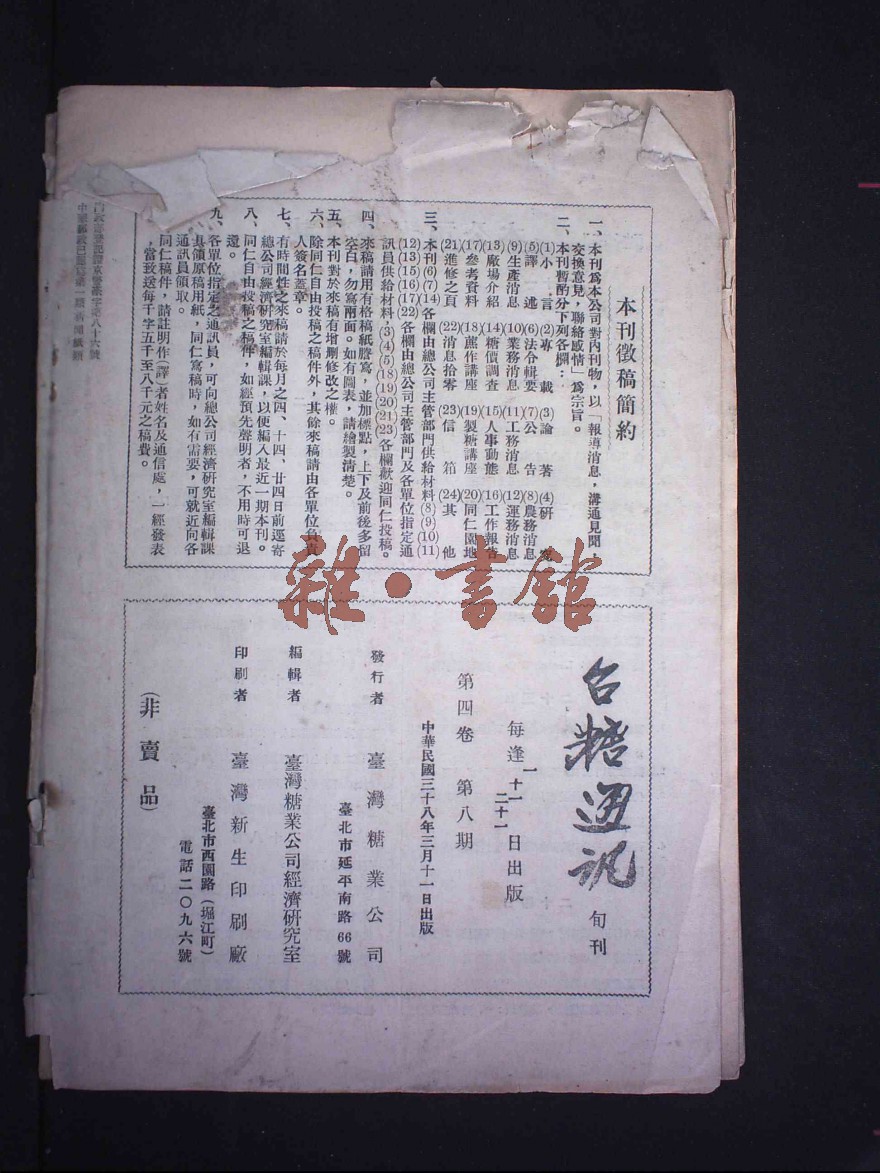 本刊徵稿簡約
一、本刊爲本公司對內刊物，以「報導消息，溝通見聞，
交換意見，聯絡感情」爲宗旨。
二、本刊暫酌分下列各欄：
(1)小言 (2)專載 (3)論著 (4)研究
(5)譯述 (6)法令輯要 (7)公告 (8)農務消息
(9)生產消息 (10)業務消息 (11)工務消息 (12)運務消息
(13)廠場介紹 (14)糖價調查 (15)人事動態 (16)工作報告
(17)參考資料 (18)蔗作講座 (19)製糖講座 (20)同仁園地
(21)進修之頁 (22)消息拾零 (23)信箱 (24)其他
三、本刊(6)(7)(14)各欄由總公司主管部門供給材料(8)(9)(10)(11)
(12)(13)(15)(16)(17)(22)各欄由總公司主管部門及各單位指定通
訊員供給材料，(3)(4)(5)(18)(19)(20)(21)(23)各欄歡迎同仁投稿。
四、來稿請用有格稿紙謄寫，並加標點，上下及前後多留
空白，勿寫兩面。如有圖表，請繪製清楚。
五、本刊對於來稿有增删修改之權。
六、除同仁自由投稿之稿件外，其餘來稿請由各單位負責
人簽名蓋章。
七、有時間性之來稿請於每月之四、十四、廿四日前逕寄
總公司經濟研究室編輯課，以便編入最近一期本刊。
八、同仁自由投稿之稿件，如經預先聲明者，不用時可退
還。
九、各單位指定之通訊員，可向總公司經濟研究室編輯課
具領原稿用紙，同仁寫稿時，如有需要，可就近向各
通訊員領取。
同仁稿件，請註明作（譯）者姓名及通信處，一經發表
，當致送每千字五千至八千元之稿費。
雜·書館
台糖通訊 旬刊
每逢一十一二十一日出版
第四卷 第八期
中華民國三十八年三月十一日出版
發行者 臺灣糖業公司
臺北市延平南路66號
編輯者 臺灣糖業公司經濟研究室
印刷者 臺灣新生印刷廠
臺北市西園路（堀江町）
電話二〇九六號
（非賣品）